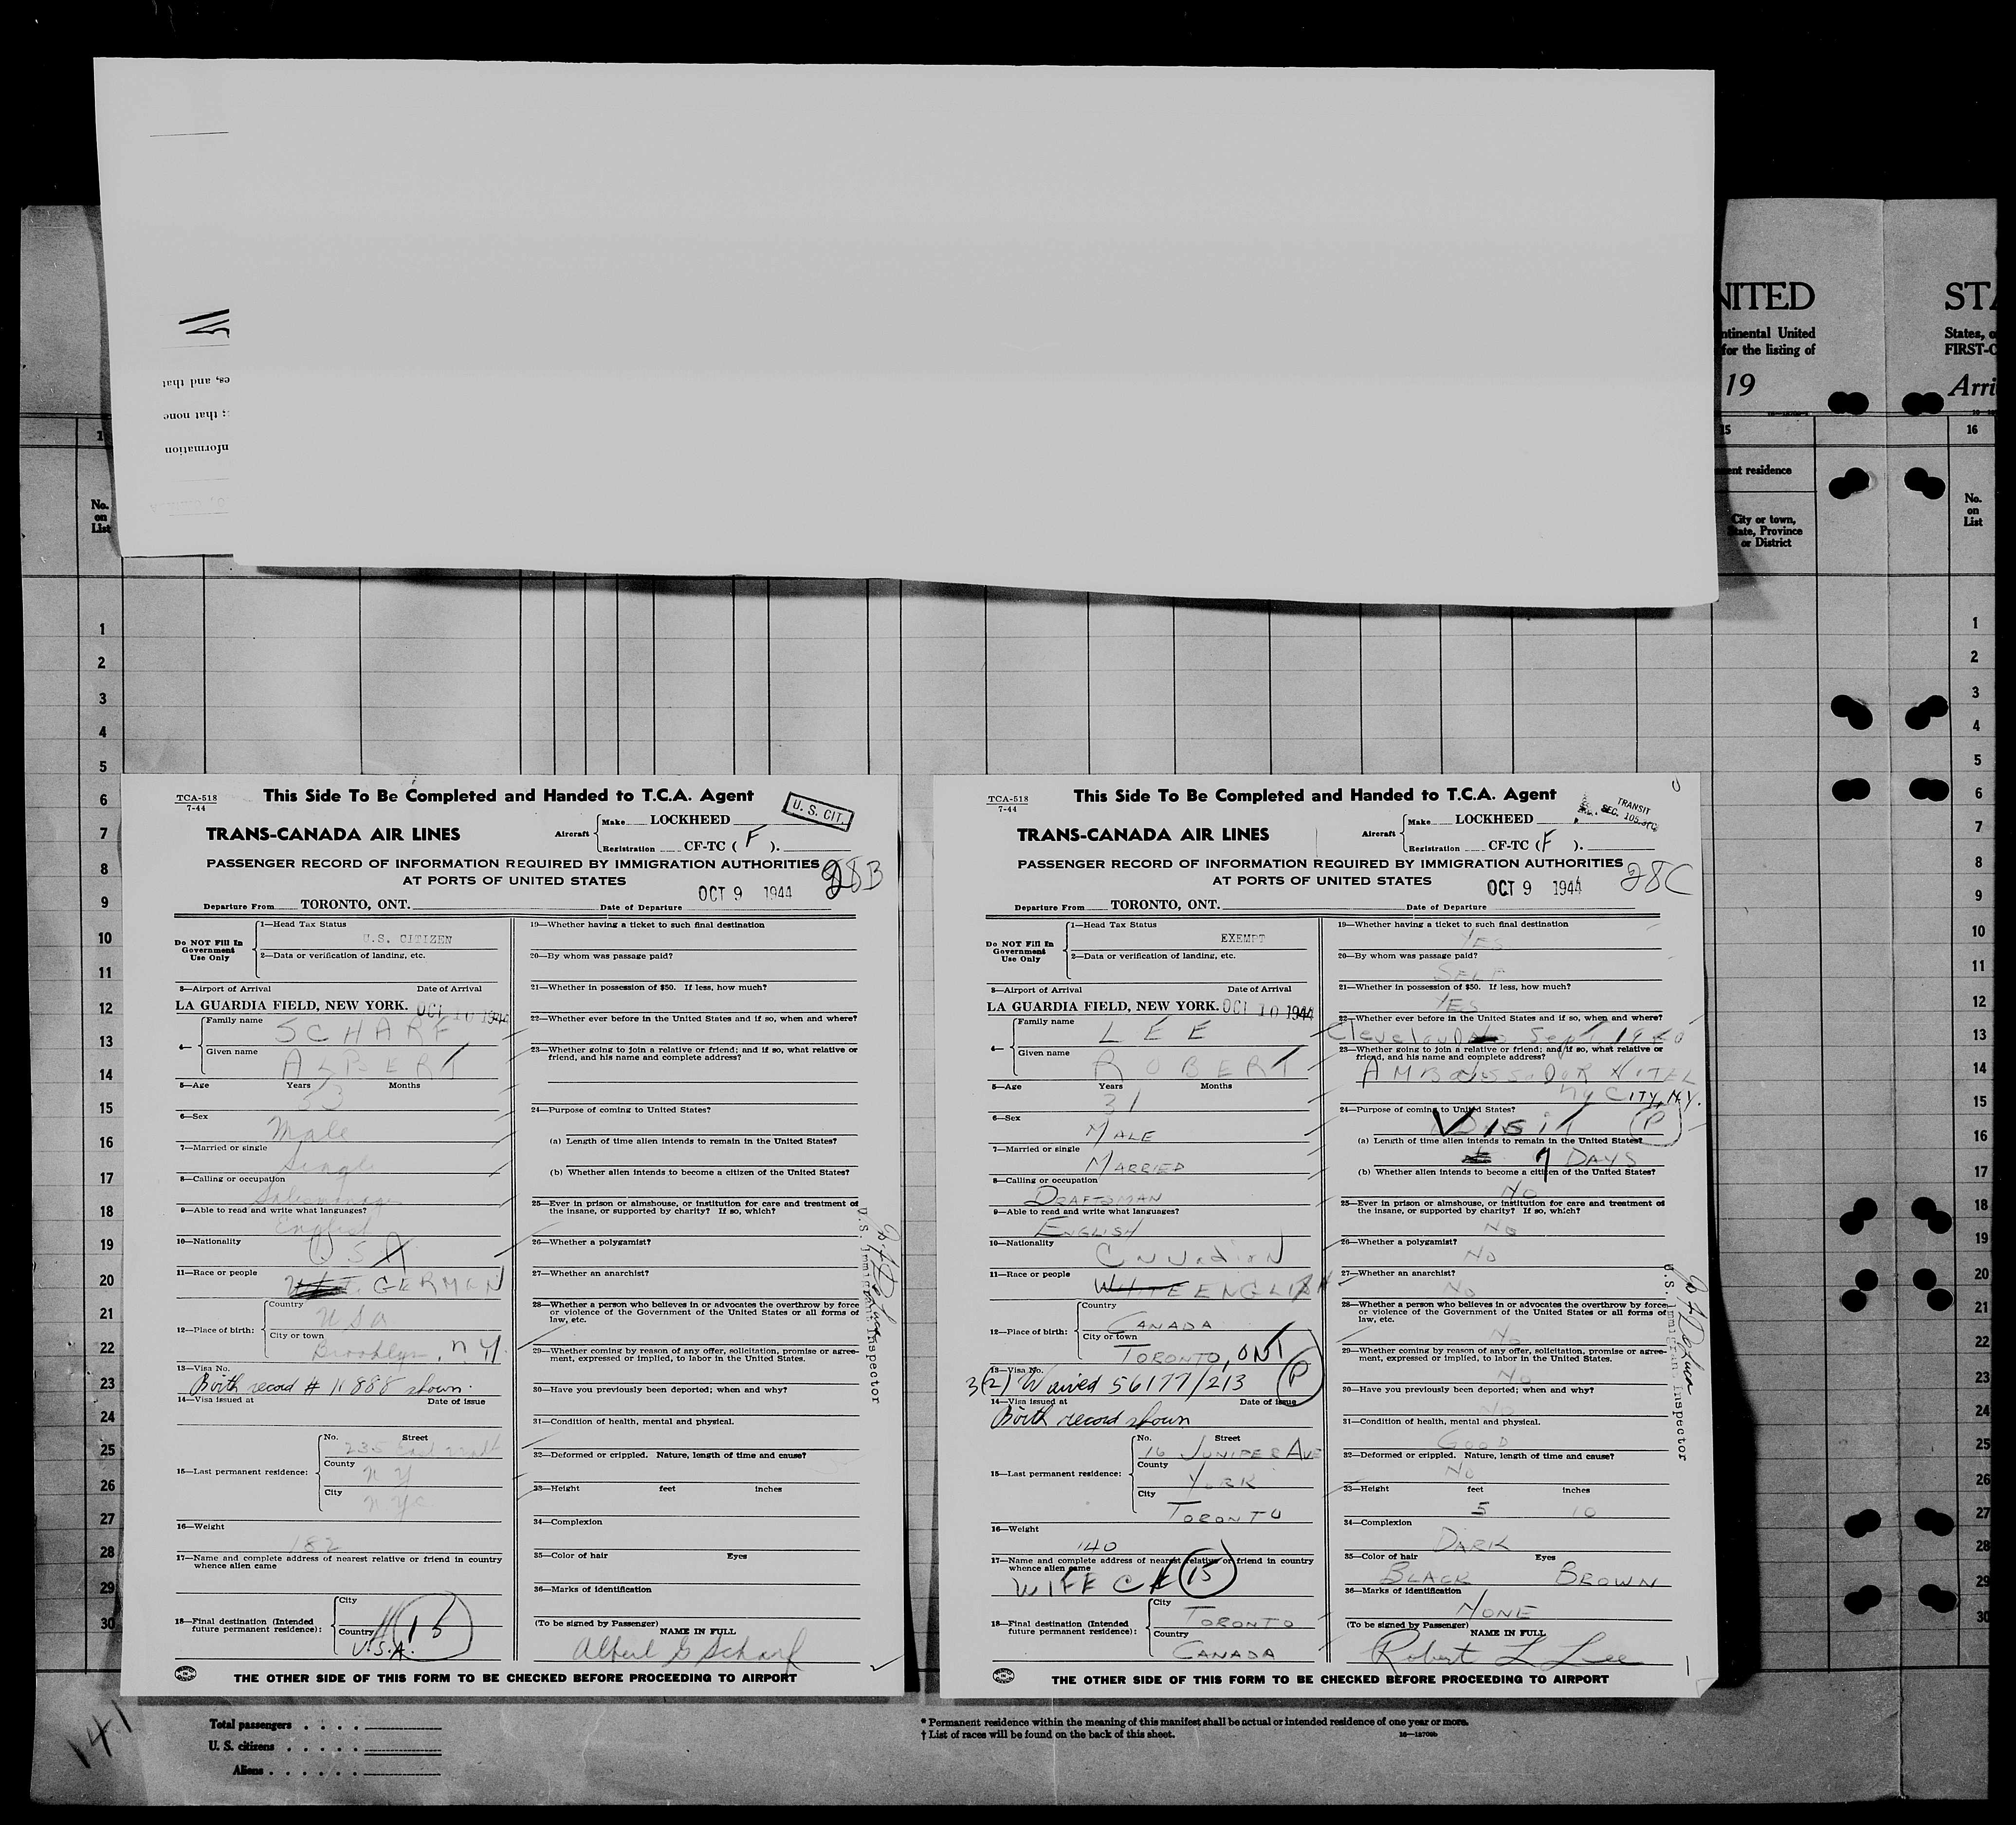 NITED
STA
ntinental United
for the listing of
19
States, o
FIRST-C
Arri
es, and that
; that none
nformation
1
No.
on
List
15
ent residence
City or town,
State, Province
or District
16
No.
on
List
1
2
3
4
5
6
7
8
9
10
11
12
13
14
15
16
17
18
19
20
21
22
23
24
25
26
27
28
29
30
TCA-518
7-44
This Side To Be Completed and Handed to T.C.A. Agent
U. S. CIT.
TRANS-CANADA AIR LINES
Aircraft
Make LOCKHEED
Registration CF-TC ( F ).
PASSENGER RECORD OF INFORMATION REQUIRED BY IMMIGRATION AUTHORITIES
AT PORTS OF UNITED STATES
28B
Departure From TORONTO, ONT. Date of Departure OCT 9 1944
Do NOT Fill In
Government
Use Only
1—Head Tax Status
U.S. CITIZEN
2—Data or verification of landing, etc.
3—Airport of Arrival Date of Arrival
LA GUARDIA FIELD, NEW YORK. OCT 10 1944
4—
Family name
SCHARF
Given name
ALBERT
5—Age Years Months
33
6—Sex
Male
7—Married or single
Single
8—Calling or occupation
Salesmanager
9—Able to read and write what languages?
English
10—Nationality
USA
11—Race or people
GERMAN
12—Place of birth:
Country
USA
City or town
Brooklyn, NY.
13—Visa No.
Birth record # 11888 shown.
14—Visa issued at Date of issue
15—Last permanent residence:
No. Street
235 East
County
NY
City
NYC
16—Weight
182
17—Name and complete address of nearest relative or friend in country
whence alien came
18—Final destination (Intended
future permanent residence):
City
Country
15
U.S.A.
19—Whether having a ticket to such final destination
20—By whom was passage paid?
21—Whether in possession of $50. If less, how much?
22—Whether ever before in the United States and if so, when and where?
23—Whether going to join a relative or friend; and if so, what relative or
friend, and his name and complete address?
24—Purpose of coming to United States?
(a) Length of time alien intends to remain in the United States?
(b) Whether alien intends to become a citizen of the United States?
25—Ever in prison or almshouse, or institution for care and treatment of
the insane, or supported by charity? If so, which?
26—Whether a polygamist?
27—Whether an anarchist?
28—Whether a person who believes in or advocates the overthrow by force
or violence of the Government of the United States or all forms of
law, etc.
29—Whether coming by reason of any offer, solicitation, promise or agree-
ment, expressed or implied, to labor in the United States.
30—Have you previously been deported; when and why?
31—Condition of health, mental and physical.
32—Deformed or crippled. Nature, length of time and cause?
33—Height feet inches
34—Complexion
35—Color of hair Eyes
36—Marks of identification
(To be signed by Passenger)
NAME IN FULL
Albert G Scharf
U.S. Immigrant Inspector
THE OTHER SIDE OF THIS FORM TO BE CHECKED BEFORE PROCEEDING TO AIRPORT
TCA-518
7-44
This Side To Be Completed and Handed to T.C.A. Agent
TRANSIT
SEC. 105.3(
TRANS-CANADA AIR LINES
Aircraft
Make LOCKHEED
Registration CF-TC (F ).
PASSENGER RECORD OF INFORMATION REQUIRED BY IMMIGRATION AUTHORITIES
AT PORTS OF UNITED STATES
28C
Departure From TORONTO, ONT. Date of Departure OCT 9 1944
Do NOT Fill In
Government
Use Only
1—Head Tax Status
EXEMPT
2—Data or verification of landing, etc.
3—Airport of Arrival Date of Arrival
LA GUARDIA FIELD, NEW YORK. OCT 10 1944
4—
Family name
LEE
Given name
ROBERT
5—Age Years Months
31
6—Sex
MALE
7—Married or single
MARRIED
8—Calling or occupation
DRAFTSMAN
9—Able to read and write what languages?
ENGLISH
10—Nationality
Canadian
11—Race or people
WHITE ENGLISH
12—Place of birth:
Country
CANADA
City or town
TORONTO, ONT
13—Visa No.
3(2) Waived 56177/213 P
14—Visa issued at Date of issue
Birth record shown
15—Last permanent residence:
No. Street
16 JUNIPER AVE
County
YORK
City
TORONTO
16—Weight
140
17—Name and complete address of nearest relative or friend in country
whence alien came
WIFE C/o 15
18—Final destination (Intended
future permanent residence):
City
TORONTO
Country
CANADA
19—Whether having a ticket to such final destination
YES
20—By whom was passage paid?
SELF
21—Whether in possession of $50. If less, how much?
YES
22—Whether ever before in the United States and if so, when and where?
Cleveland Sept 1940
23—Whether going to join a relative or friend; and if so, what relative or
friend, and his name and complete address?
AMBASSADOR HOTEL
NY CITY, N.Y.
24—Purpose of coming to United States?
Visit P
(a) Length of time alien intends to remain in the United States?
7 DAYS
(b) Whether alien intends to become a citizen of the United States?
No
25—Ever in prison or almshouse, or institution for care and treatment of
the insane, or supported by charity? If so, which?
No
26—Whether a polygamist?
No
27—Whether an anarchist?
No
28—Whether a person who believes in or advocates the overthrow by force
or violence of the Government of the United States or all forms of
law, etc.
No
29—Whether coming by reason of any offer, solicitation, promise or agree-
ment, expressed or implied, to labor in the United States.
No
30—Have you previously been deported; when and why?
No
31—Condition of health, mental and physical.
GOOD
32—Deformed or crippled. Nature, length of time and cause?
No
33—Height feet inches
5 10
34—Complexion
DARK
35—Color of hair Eyes
BLACK BROWN
36—Marks of identification
NONE
(To be signed by Passenger)
NAME IN FULL
Robert L Lee
U.S. Immigrant Inspector
THE OTHER SIDE OF THIS FORM TO BE CHECKED BEFORE PROCEEDING TO AIRPORT
141
Total passengers . . . .
U. S. citizens . . . . .
Aliens . . . . . .
* Permanent residence within the meaning of this manifest shall be actual or intended residence of one year or more.
† List of races will be found on the back of this sheet.